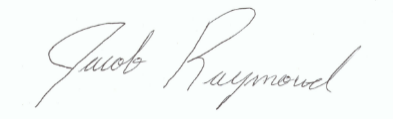 Jacob Raymond